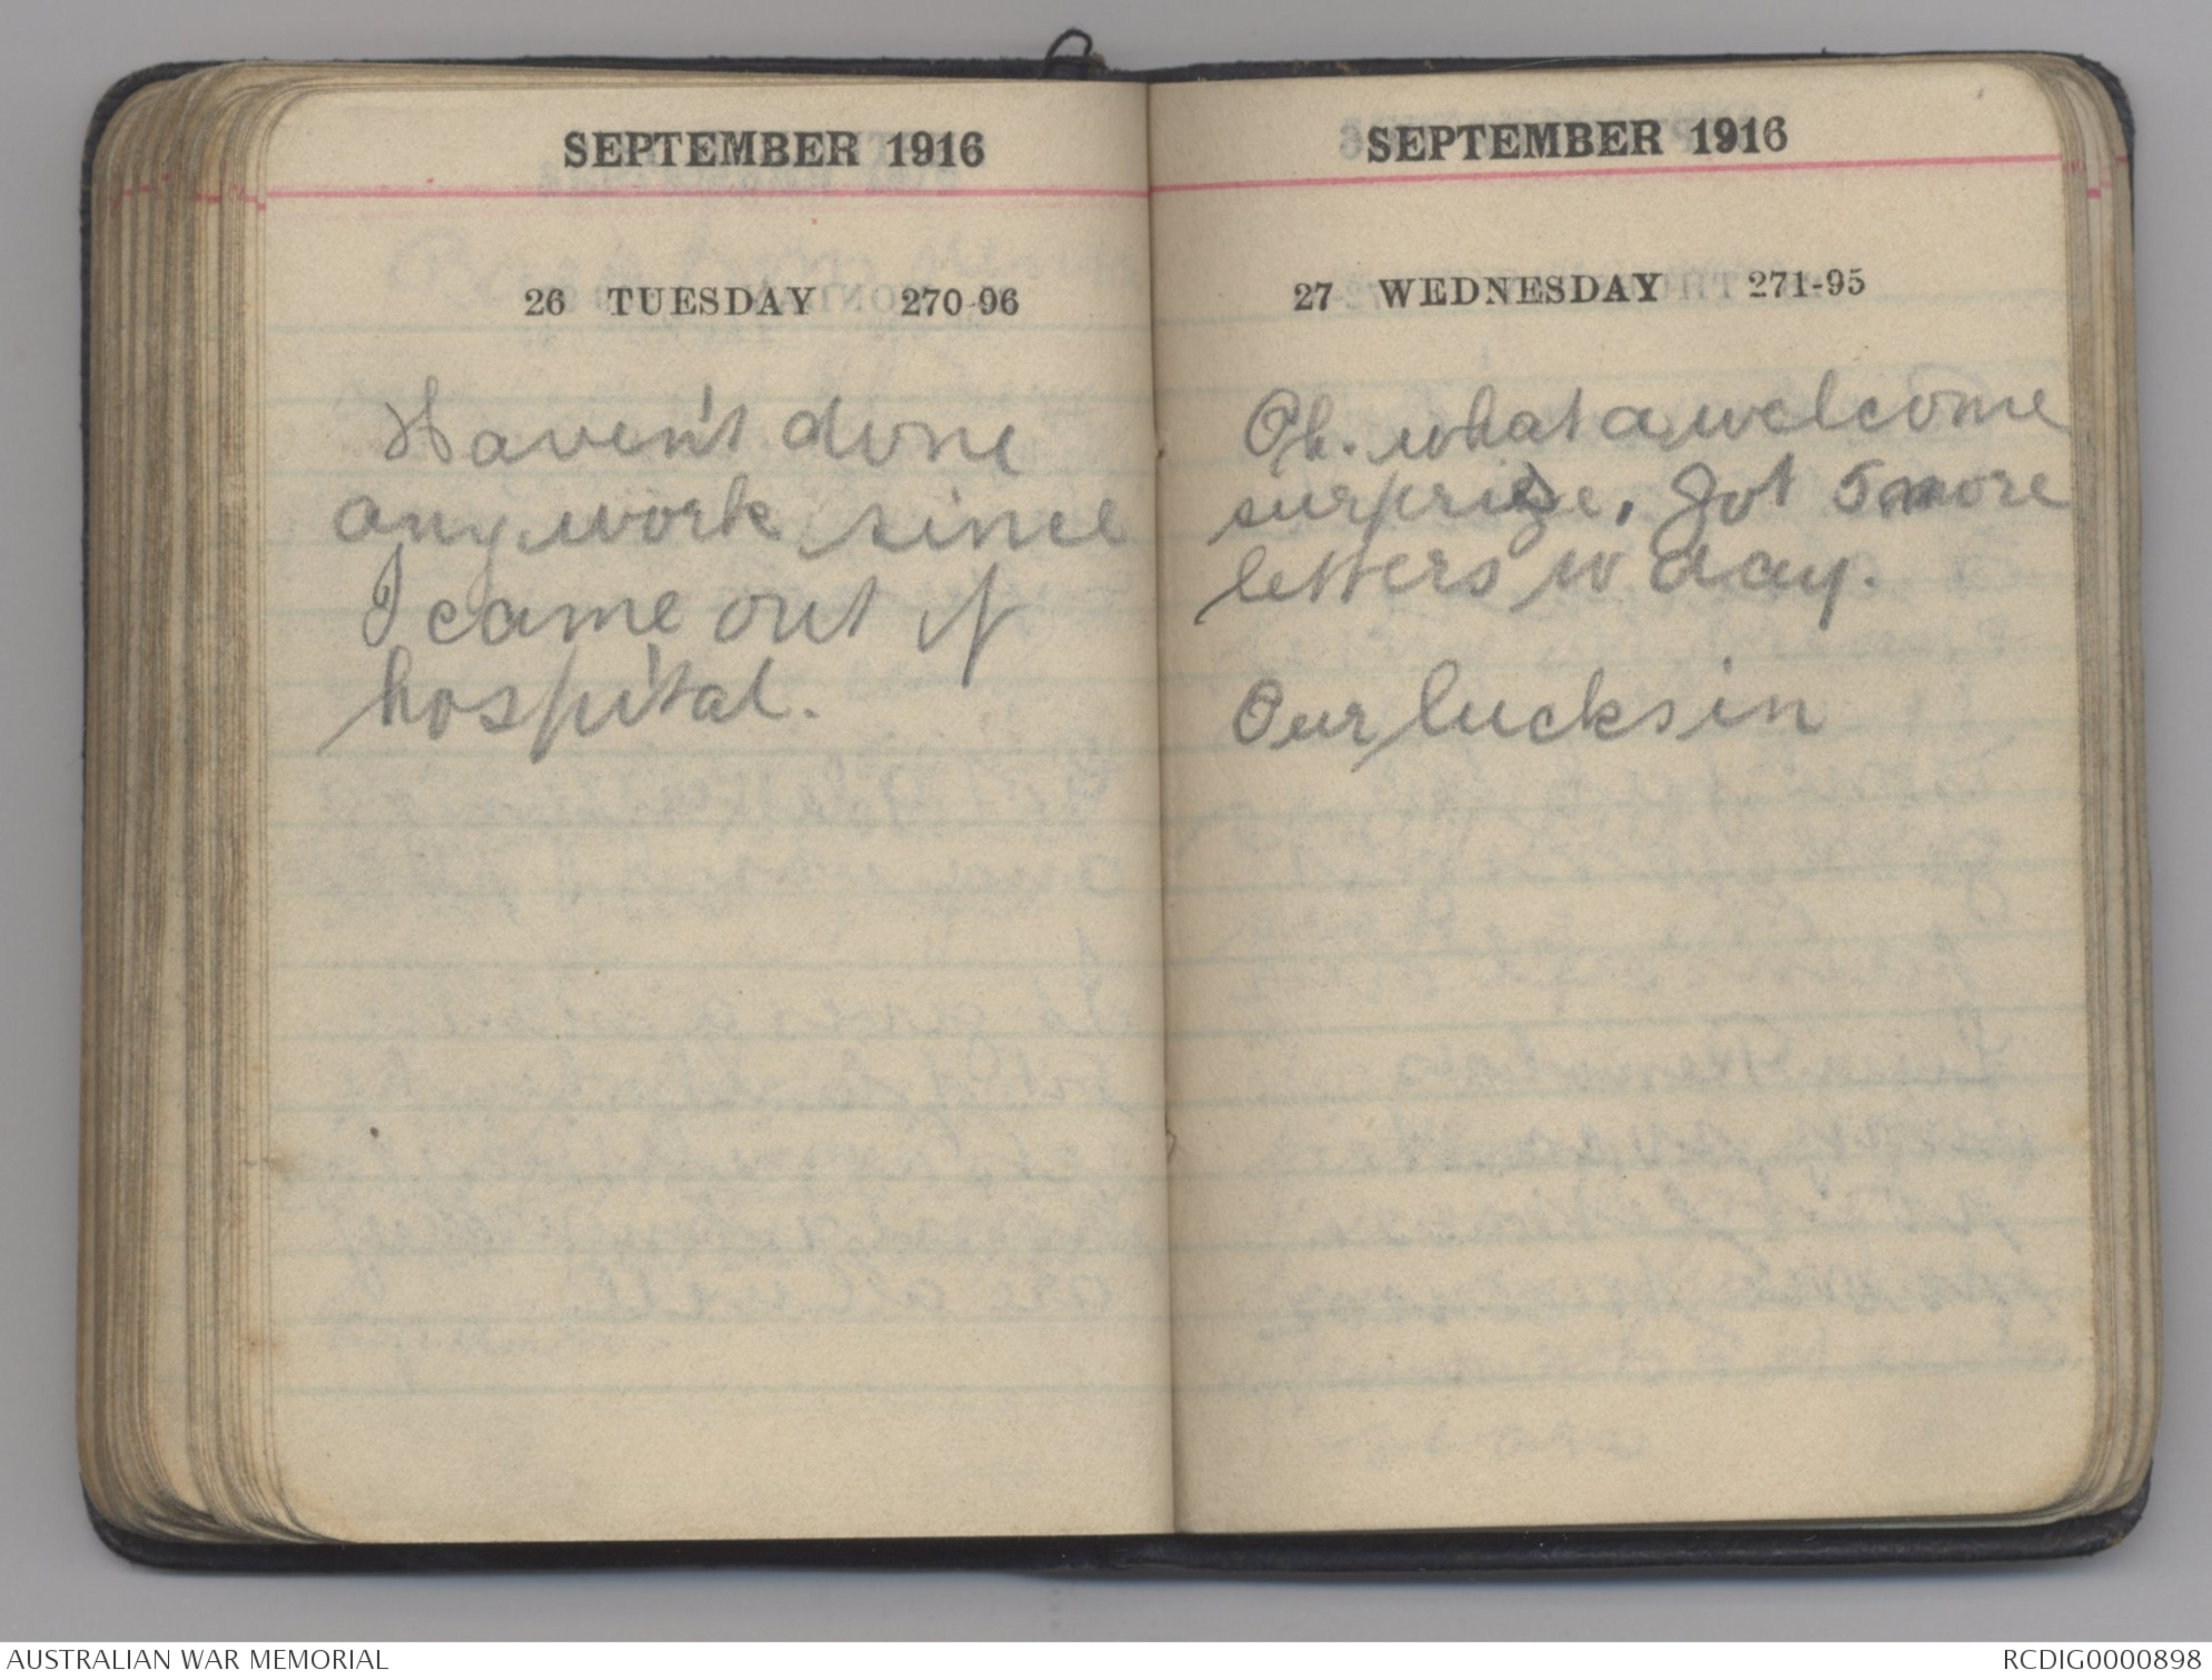 SEPTEMBER 1916
26 TUESDAY 270-96
Haven't done
any work since
I came out of
hospital.
SEPTEMBER 1916
27 WEDNESDAY 271-95
Oh. what a welcome
surprize, got 5 more
letters to day.
Our lucks in
AUSTRALIAN WAR MEMORIAL
RCDIG0000898